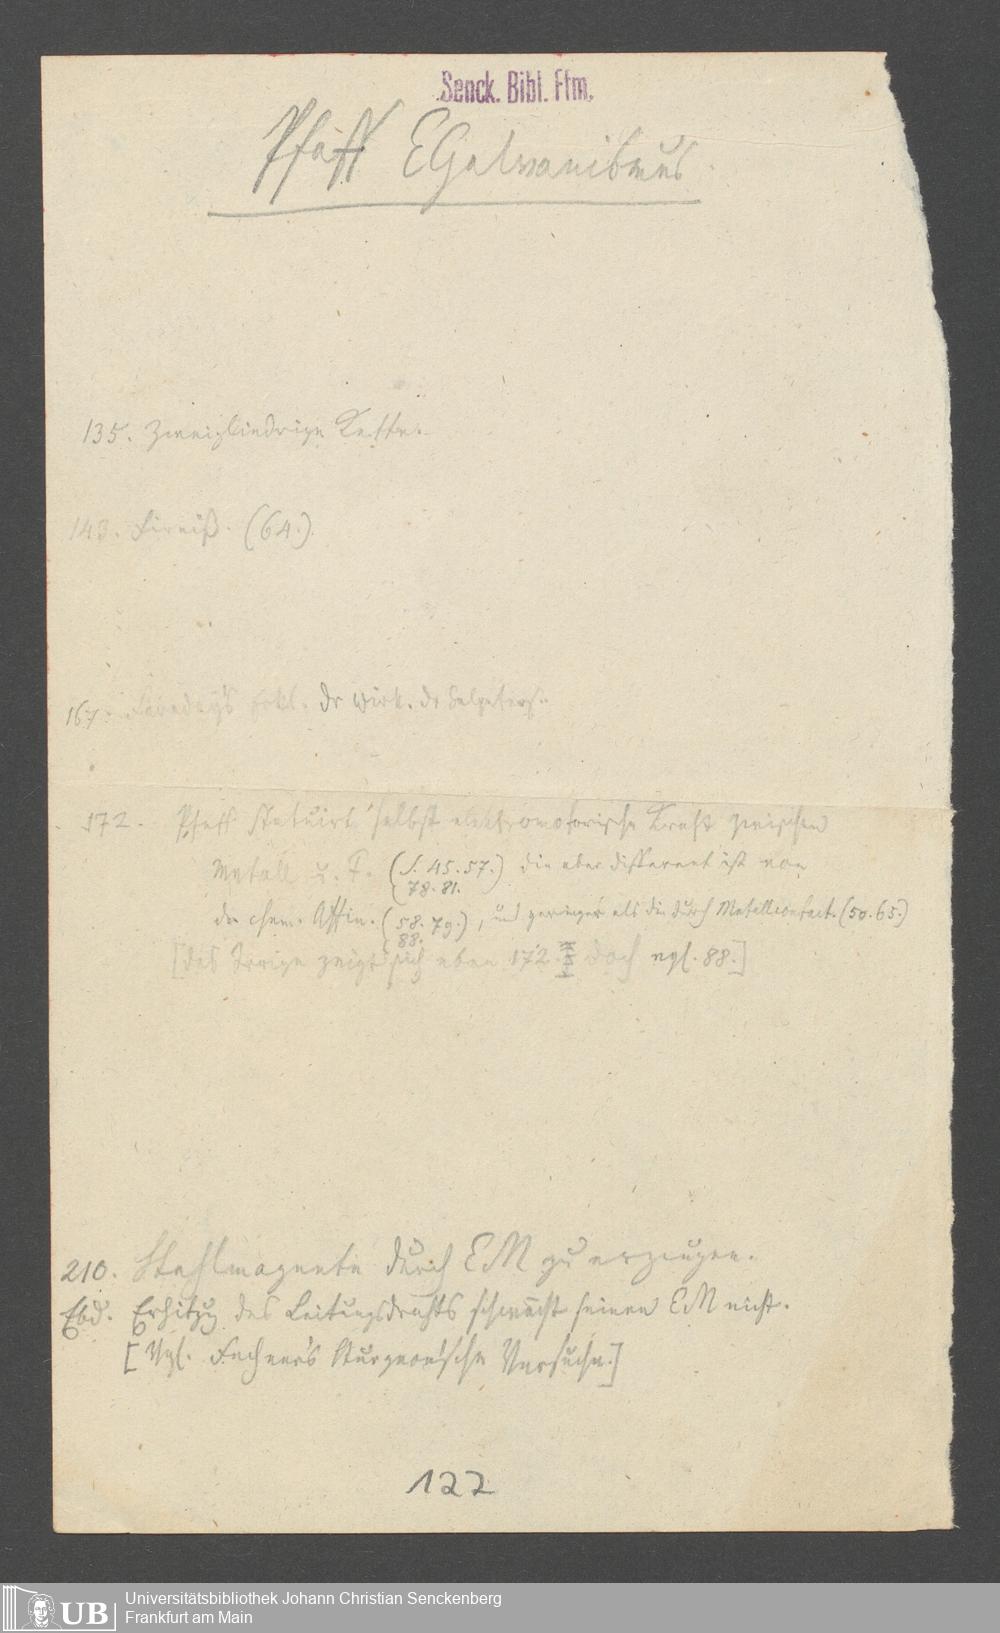 Senck. Bibl. Ffm.
Pfaff EGalvanismus
135. Zweigliedrige Kette.
143. Firniß. (64.)
167. Faraday's Erkl. dr Wirk. ds Salpeters.
172. Pfaff statuirt selbst elektromotorische Kraft zwischen
Metall u. F. (S. 45. 57.) die aber different ist von
78. 81.
der chem. Affin. (58. 79.), und geringer als die durch Metallcontact. (50. 65.)
88.
[das Irrige zeigt sich eben 172. doch vgl. 88.]
210. Stahlmagnete durch EM zu erzeugen.
Ebd. Erhitzg des Leitungsdrahts schwächt seinen EM nicht.
[Vgl. Fechner's Sturgeon'sche Versuche.]
122
UB
Universitätsbibliothek Johann Christian Senckenberg
Frankfurt am Main